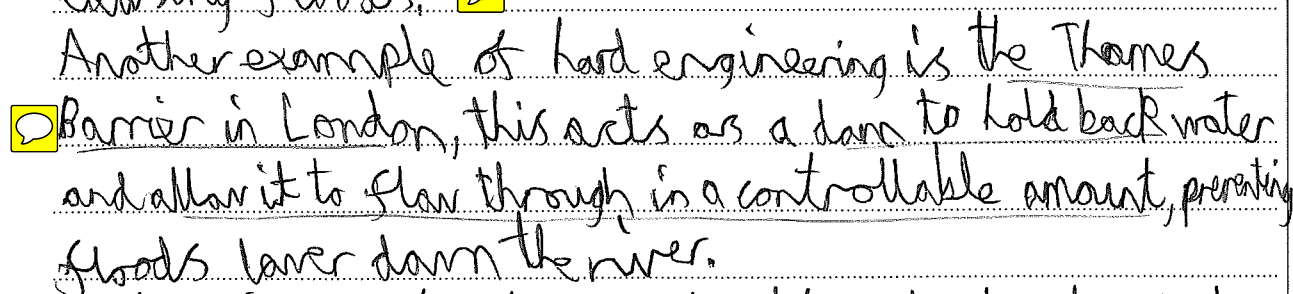 Another example of hard engineering is the Thames
Barrier in London, this acts as a dam to hold back water
and allow it to flow through in a controllable amount, preventing
floods lower down the river.